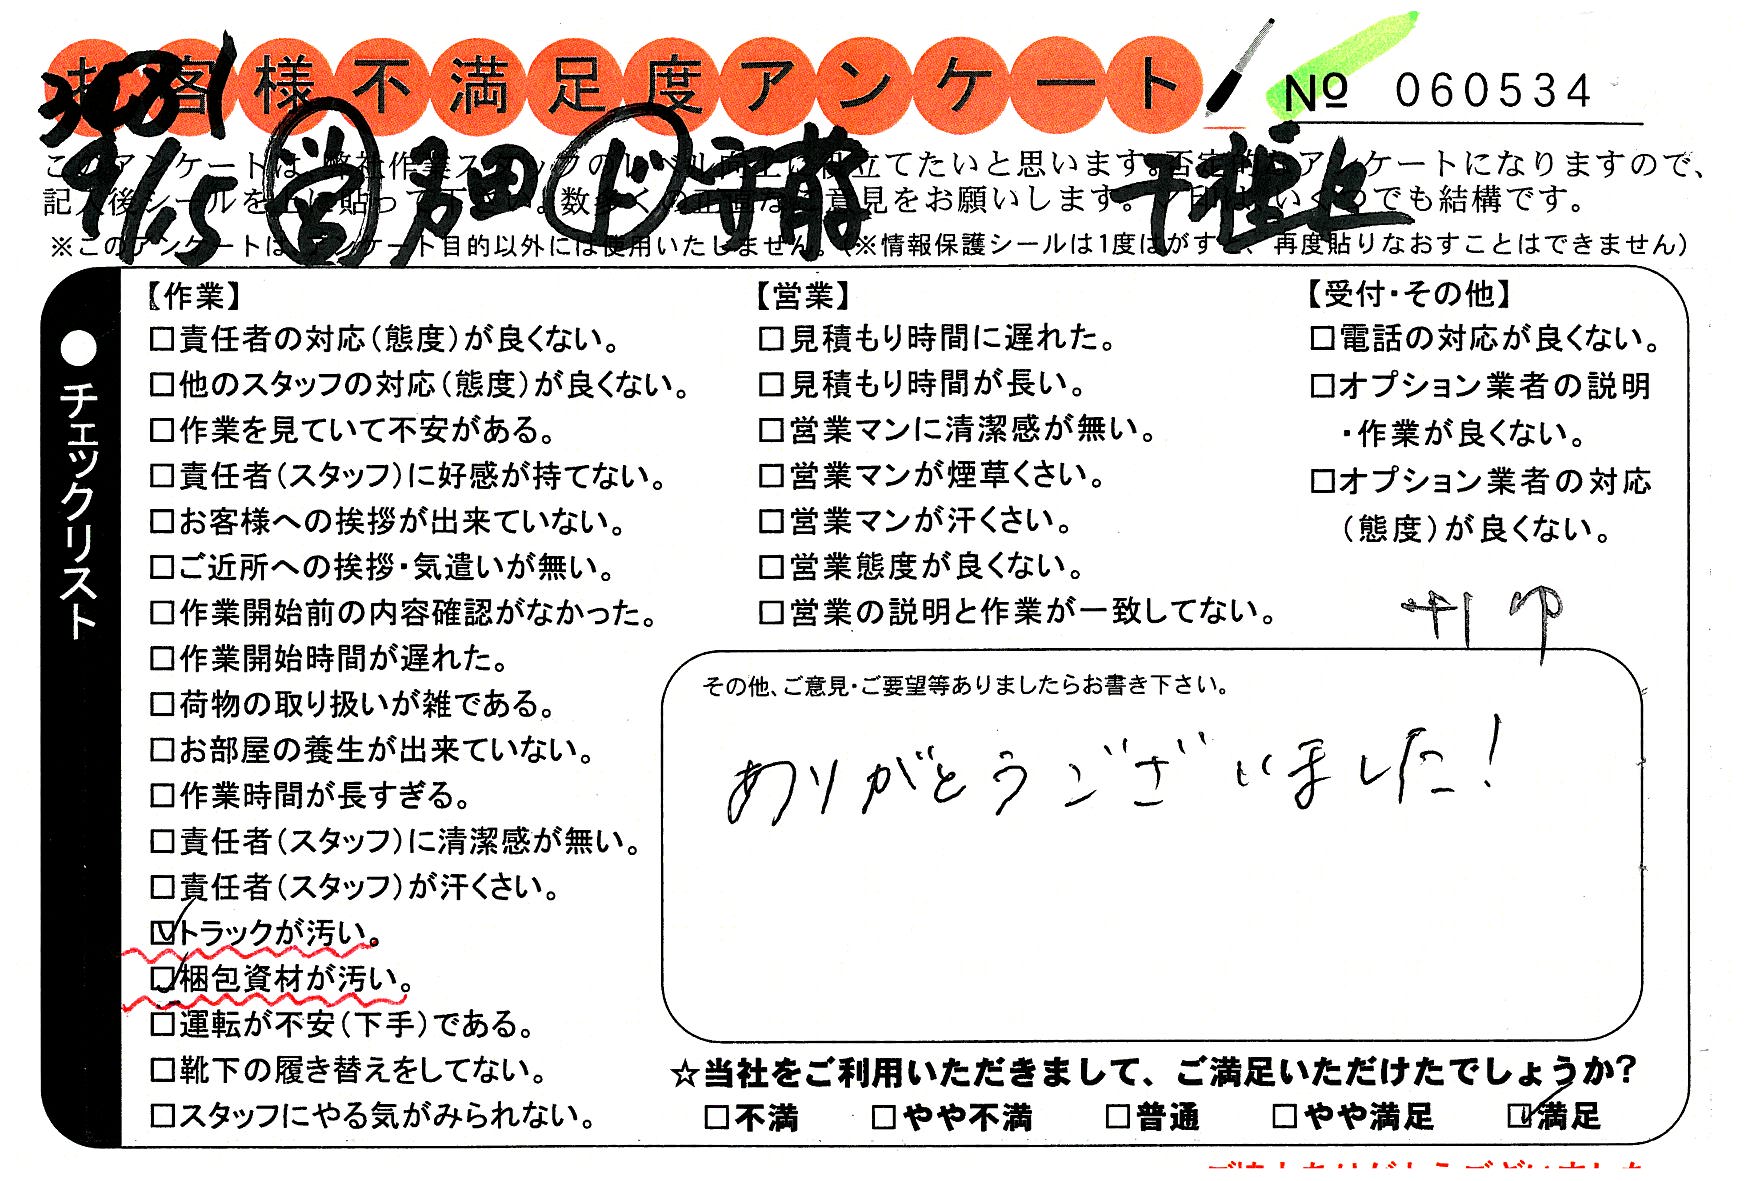 お客様不満足度アンケート
№ 060534
9/15 営 戸田 ド 守前
このアンケートは、弊社作業スタッフのレベル向上に役立てたいと思います。否定的なアンケートになりますので、
記入後シールを上に貼って下さい。数多くの正直なご意見をお願いします。
※このアンケートは、アンケート目的以外には使用いたしません。(※情報保護シールは1度はがすと、再度貼りなおすことはできません)
●チェックリスト
【作業】
□責任者の対応(態度)が良くない。
□他のスタッフの対応(態度)が良くない。
□作業を見ていて不安がある。
□責任者(スタッフ)に好感が持てない。
□お客様への挨拶が出来ていない。
□ご近所への挨拶・気遣いが無い。
□作業開始前の内容確認がなかった。
□作業開始時間が遅れた。
□荷物の取り扱いが雑である。
□お部屋の養生が出来ていない。
□作業時間が長すぎる。
□責任者(スタッフ)に清潔感が無い。
□責任者(スタッフ)が汗くさい。
☑トラックが汚い。
☑梱包資材が汚い。
□運転が不安(下手)である。
□靴下の履き替えをしてない。
□スタッフにやる気がみられない。
【営業】
□見積もり時間に遅れた。
□見積もり時間が長い。
□営業マンに清潔感が無い。
□営業マンが煙草くさい。
□営業マンが汗くさい。
□営業態度が良くない。
□営業の説明と作業が一致してない。
【受付・その他】
□電話の対応が良くない。
□オプション業者の説明
・作業が良くない。
□オプション業者の対応
(態度)が良くない。
その他、ご意見・ご要望等ありましたらお書き下さい。
ありがとうございました!
☆当社をご利用いただきまして、ご満足いただけたでしょうか?
□不満 □やや不満 □普通 □やや満足 ☑満足